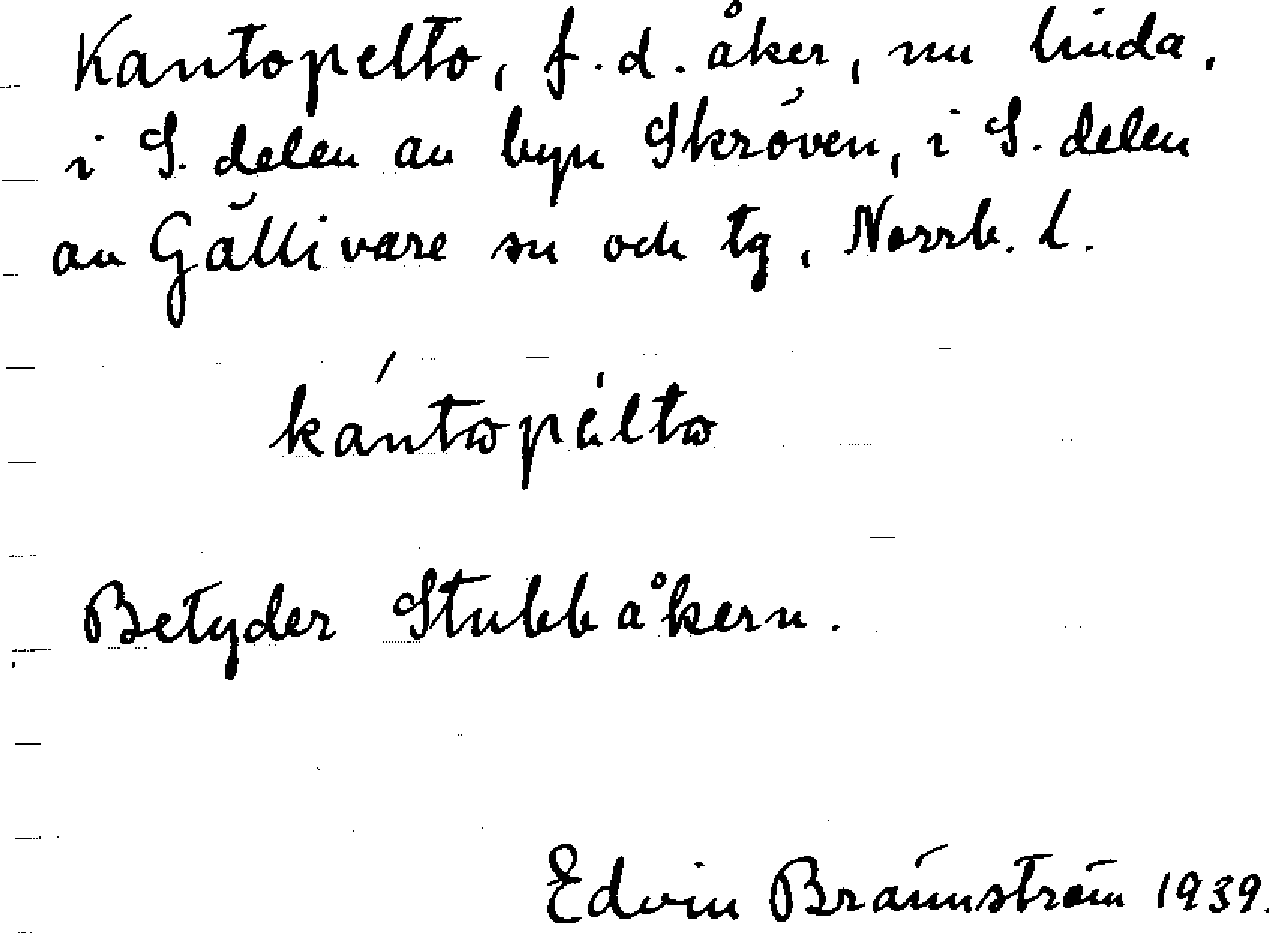 Kantopelto, f.d. åker, nu linda,
i S. delen av byn Skröven, i S. delen
av Gällivare sn och tg, Norrb. l.
kántωpèltω
Betyder Stubbåkern.
Edvin Brännström 1939.